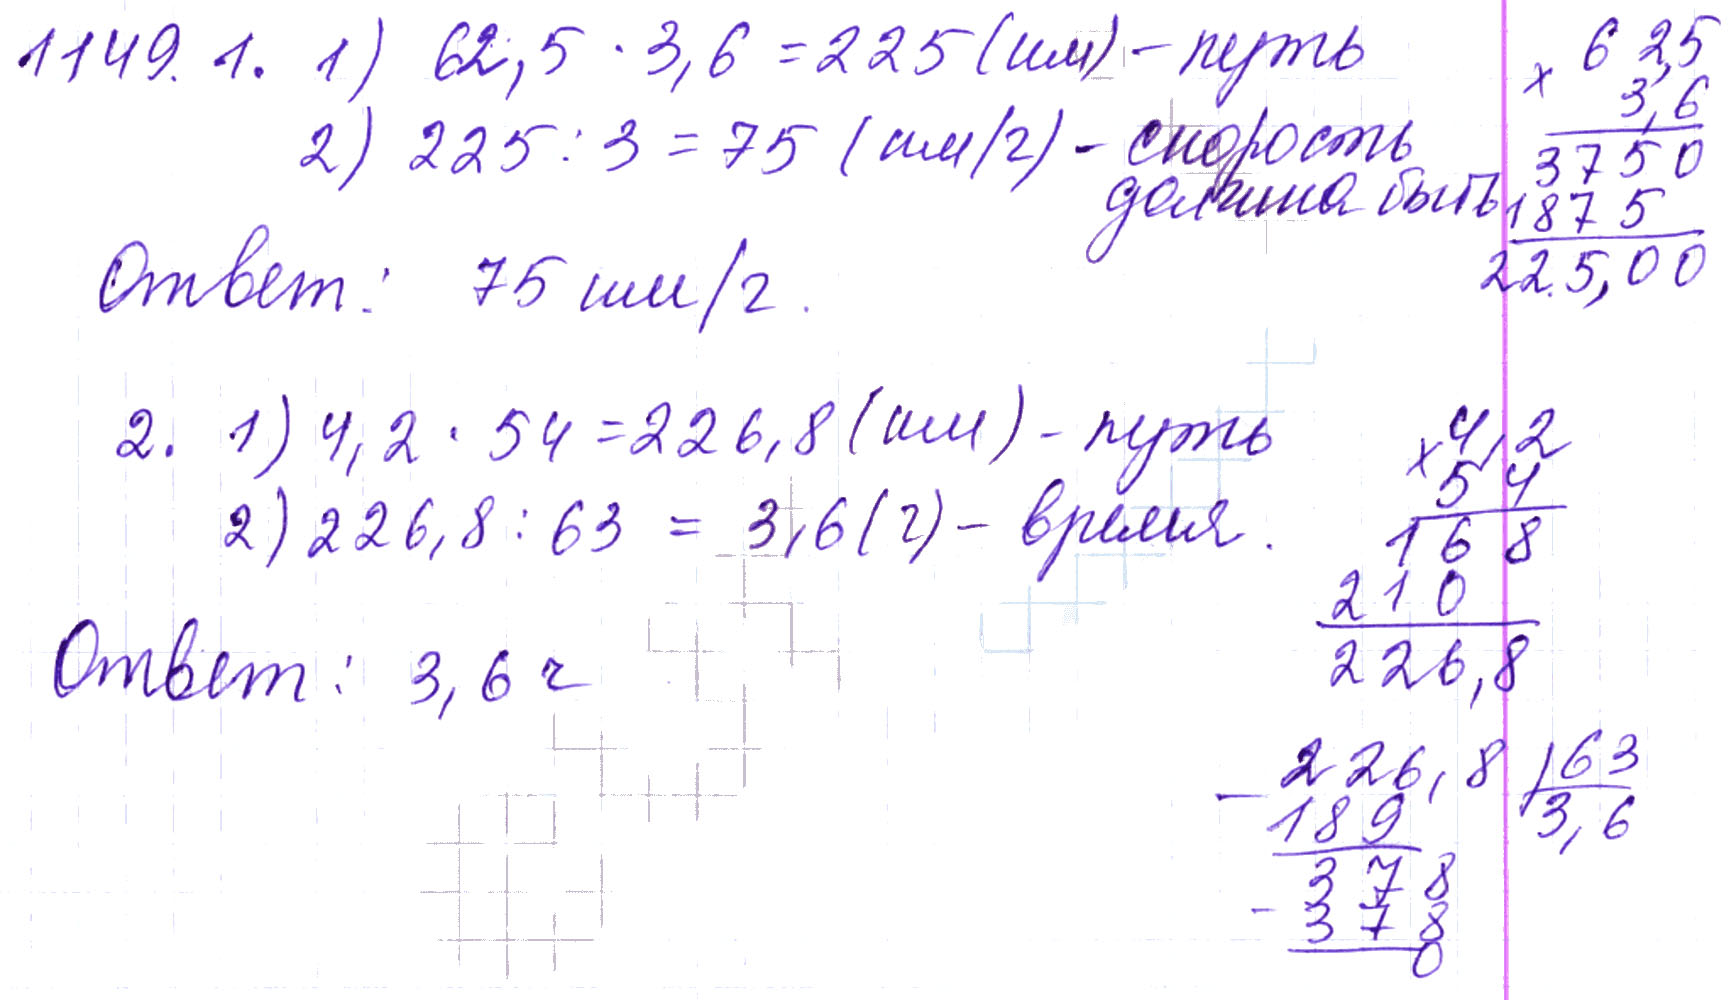 1149. 1. 1) 62,5 · 3,6 = 225 (км) – путь
2) 225 : 3 = 75 (км/ч) – скорость
должна быть
Ответ: 75 км/ч.
62,5
× 3,6
3750
1875
225,00
2. 1) 4,2 · 54 = 226,8 (км) – путь
2) 226,8 : 63 = 3,6 (ч) – время.
Ответ: 3,6 ч
× 4,2
54
168
210
226,8
– 226,8 | 63
189 3,6
378
– 378
0